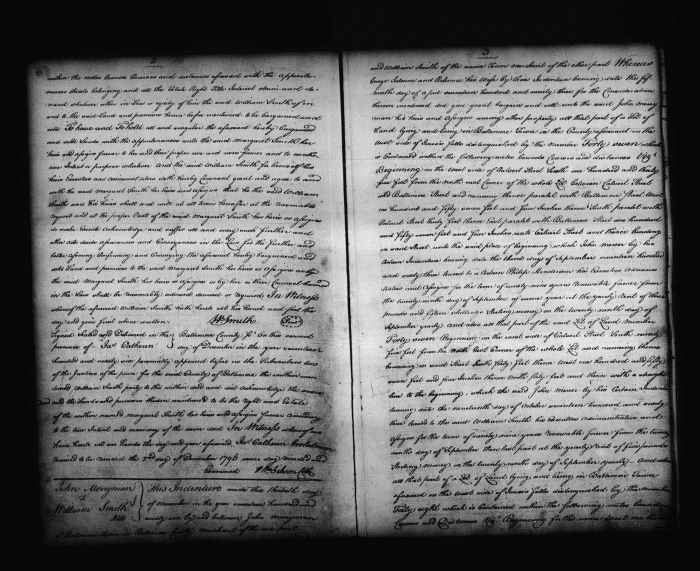 2
within the metes bounds Courses and distances aforesaid with the appurte-
nances thereto belonging and all the Estate Right Title Interest claim and de-
mand whatsoever either in Law or equity of him the said William Smith of in
and to the said Land and premises herein before mentioned to be bargained and
sold To have and To hold all and singular the aforesaid hereby bargained
and sold Lands with the appurtenances unto the said Margaret Smith her
heirs and assigns forever to her and their proper use and uses forever and to no other
use intent or purpose whatsoever And the said William Smith for himself his
heirs Executors and administrators doth hereby Covenant grant and agree to and
with the said Margaret Smith her heirs and assigns that he the said William
Smith and his heirs shall and will at all times hereafter at the reasonable
request and at the proper Cost of the said Margaret Smith her heirs or assigns
do make Execute acknowledge and suffer all and every such further and
other acts deeds assurances and Conveyances in the Law for the further and
better assuring Confirming and Conveying the aforesaid hereby bargained and
sold Land and premises to the said Margaret Smith her heirs or assigns as by
the said Margaret Smith her heirs or assigns or by her or their Counsel learned
in the Law shall be reasonably advised devised or required In Witness
whereof the aforesaid William Smith hath hereto set his hand and seal the
day and year first above written
Wm Smith (Seal)
Signed Sealed and Delivered in the } Baltimore County Sc. On this second
presence of Jas Calhoun } day of December in the year seventeen
hundred and ninety six personally appeared before me the Subscriber one
of the Justices of the peace for the said County of Baltimore the within
named William Smith party to this within deed and did acknowledge the same
and the lands and premises therein mentioned to be the right and Estate
of the within named Margaret Smith her heirs and assigns forever according
to the true Intent and meaning of the same and In Witness whereof we
have hereto set our hands the day and year aforesaid Jas Calhoun
received to be recorded the 2nd day of December 1796 same day recorded and
Examined Wm Gibson Clk
John Merryman } This Indenture made this thirtieth day
} of November in the year seventeen hundred and
William Smith } ninety six by and between John Merryman
Deed
of Baltimore Town in Baltimore County merchant of the one part
3
and William Smith of the same Town merchant of the other part Whereas
and Rebecca his Wife by their Indenture bearing date the fif-
teenth day of seventeen hundred and ninety three for the Consideration
therein mentioned did give grant bargain and sell unto the said John Merry-
man his heirs and assigns among other property all that part of a Lot of
Land lying and being in Baltimore Town in the County aforesaid on the
west side of Jones's Falls distinguished by the number Forty seven which
is contained within the following metes bounds Courses and distances Viz.
Beginning on the west side of Calvert Street one hundred and thirty
five feet from the north east Corner of the whole Lot between Calvert Street
and Baltimore Street and running thence parallel with Baltimore Street west
one hundred and fifty seven feet and four Inches thence South parallel with
Calvert Street thirty feet thence East parallel with Baltimore Street one hundred
and fifty seven feet and four Inches unto Calvert Street and thence bounding
on said Street unto the said place of beginning, which John Merry by his
certain Indenture bearing date the third day of September seventeen hundred
and ninety three leased to a certain Philip Henderson his Executors adminis-
trators and Assigns for the term of ninety nine years renewable forever from
the twenty ninth day of September of same year at the yearly rent of three
pounds and fifteen shillings Sterling money on the twenty ninth day of
September yearly. and also all that part of the said Lot of Land number
Forty seven Beginning on the west side of Calvert Street ninety
five feet from the north East Corner of the whole Lot and running thence
bounding on said Street South forty feet thence west one hundred and fifty
seven feet and four Inches thence North forty feet and thence with a straight
line to the beginning, which the said John Merry by his Certain Indenture
bearing date the nineteenth day of October seventeen hundred and ninety
three leased to the said William Smith his Executors administrators and
Assigns for the term of ninety nine years renewable forever from the twenty
ninth day of September then last past at the yearly rent of five pounds
Sterling money on the twenty ninth day of September yearly. And also
all that part of a Lot of Land lying and being in Baltimore Town
aforesaid on the west side of Jones's Falls distinguished by the number
Forty eight which is Contained within the following metes bounds
Courses and Distances Viz. Beginning for the same